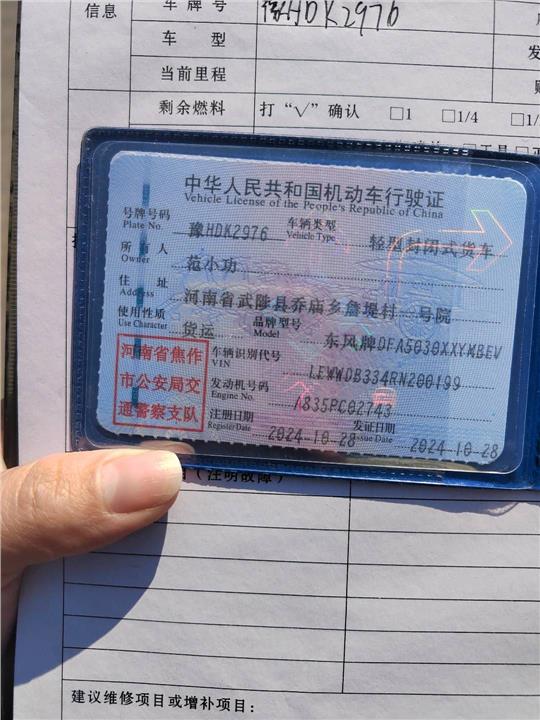 信息
车牌号
豫HDK2976
车型
当前里程
剩余燃料 打“√”确认 □1 □1/4
中华人民共和国机动车行驶证
Vehicle License of the People's Republic of China
号牌号码 豫HDK2976 车辆类型 轻型封闭式货车
Plate No. Vehicle Type
所有人 范小功
Owner
住址 河南省武陟县乔庙乡詹堤村一号院
Address
使用性质 货运 品牌型号 东风牌DFA5030XXYMBEV
Use Character Model
河南省焦作
市公安局交
通警察支队
车辆识别代号 LEWWDB334RN200199
VIN
发动机号码 1835PC02743
Engine No.
注册日期 2024-10-28 发证日期 2024-10-28
Register Date Issue Date
(注明故障)
建议维修项目或增补项目: